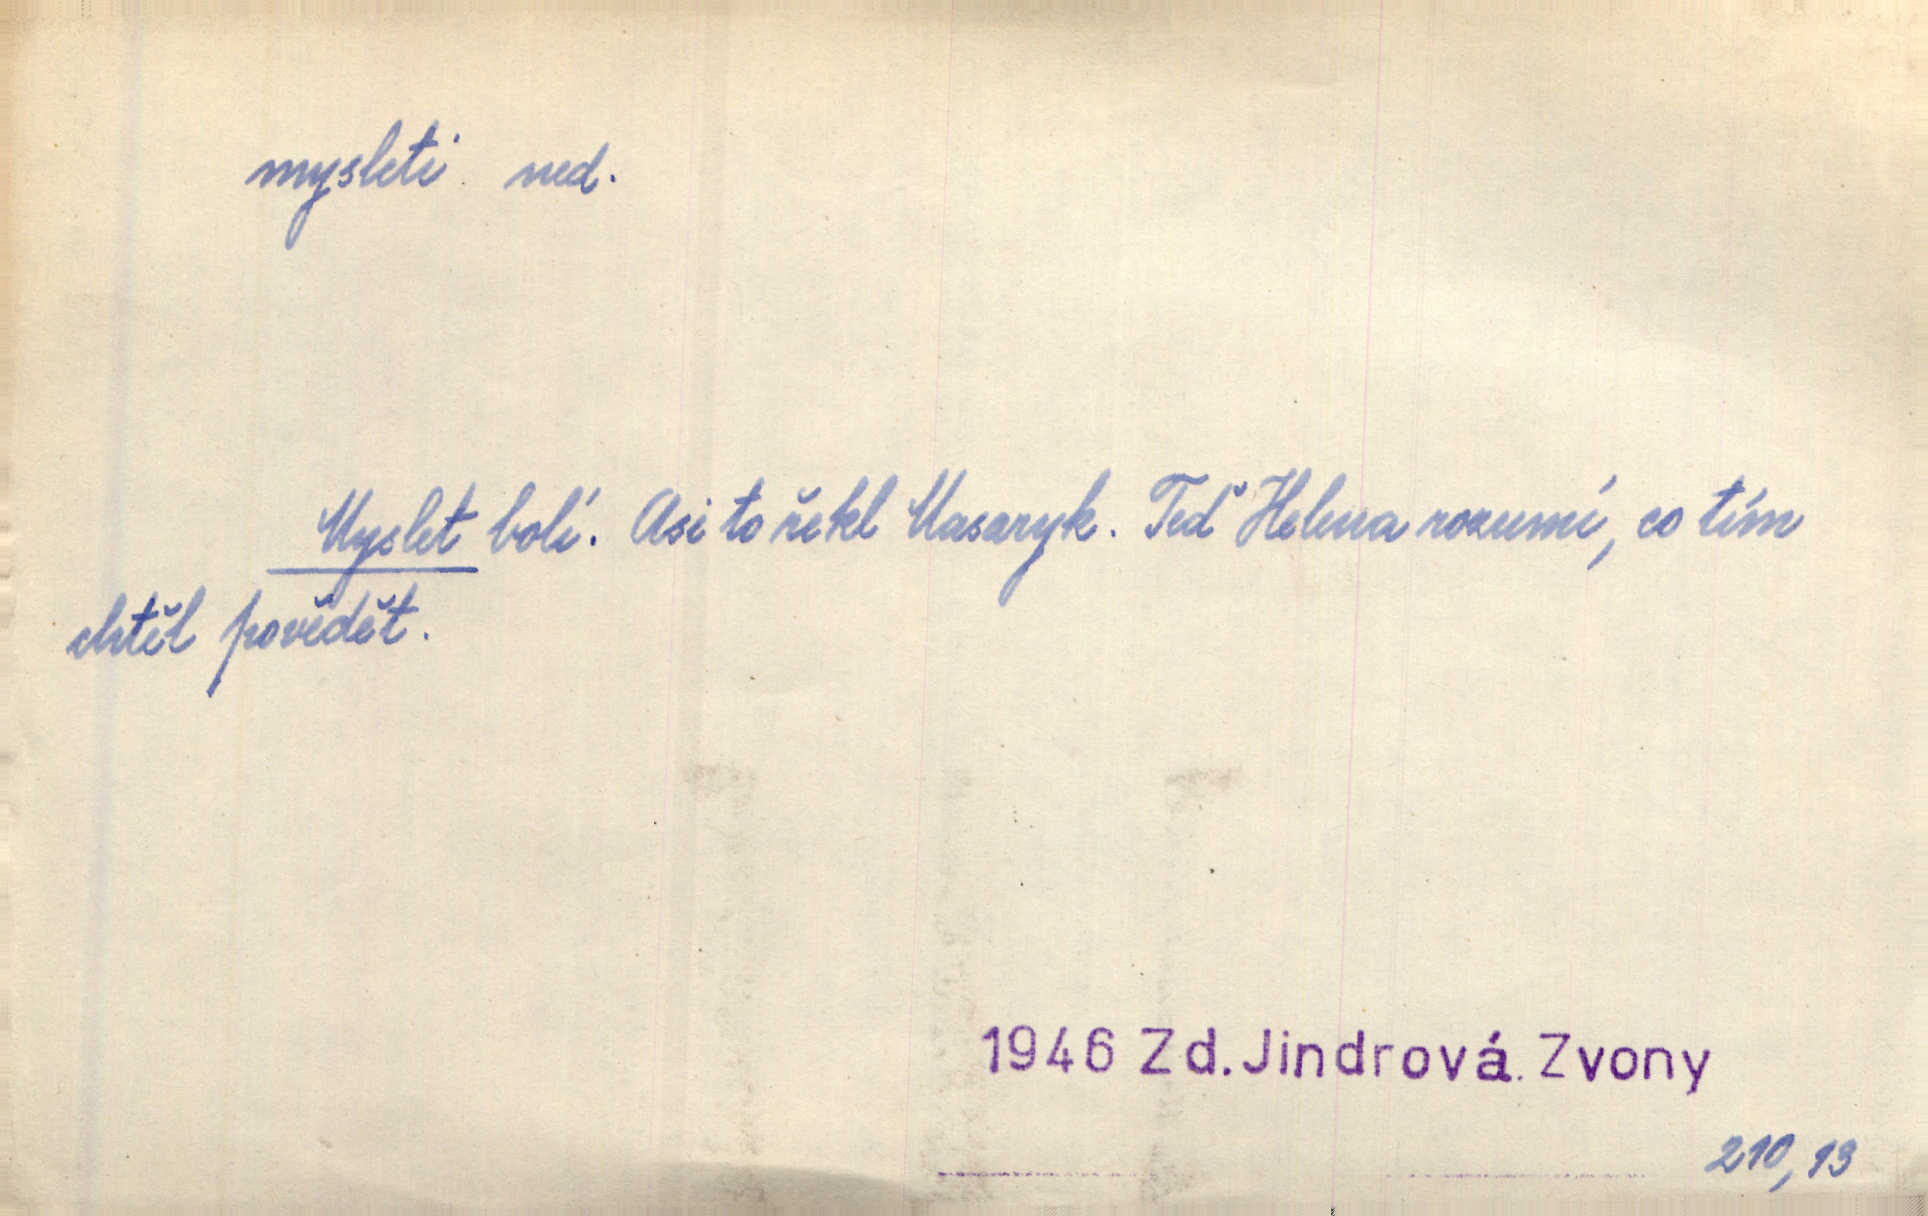 mysleti ned.
Myslet bolí. Asi to řekl Masaryk. Teď Helena rozumí, co tím
chtěl povědět.
1946 Zd. Jindrová. Zvony
210, 13